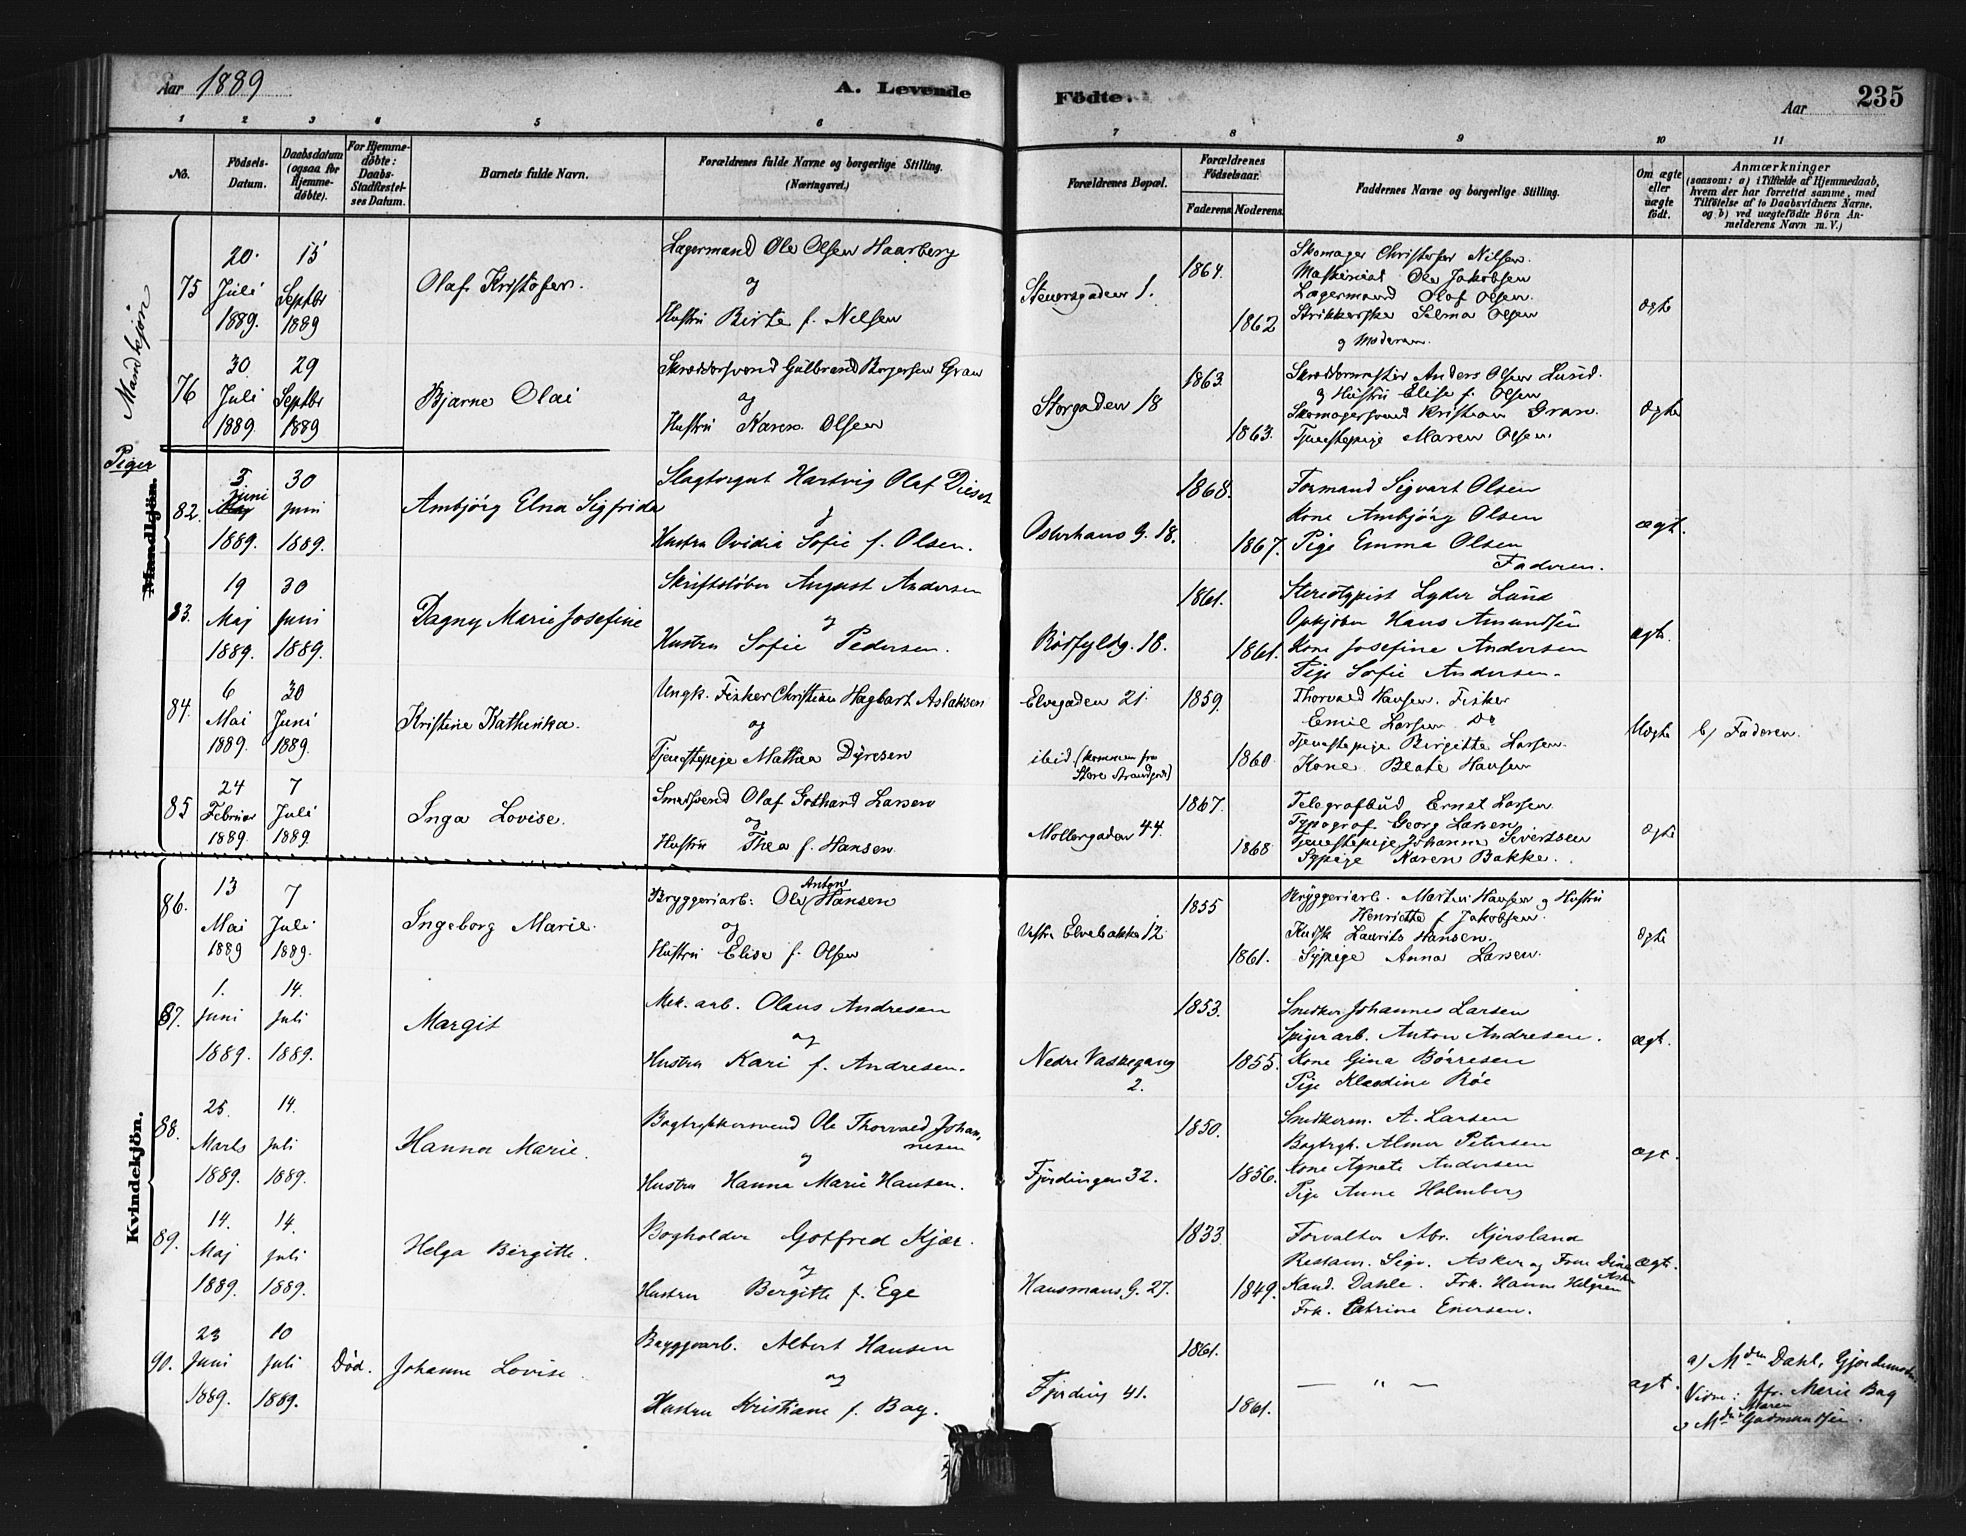 Aar 1889
A. Levende
Födte.
Aar
235
1 2 3 4 5 6 7 8 9 10 11
No.
Födsels-
Datum.
Daabsdatum
(ogsaa for
Hjemme-
döbte).
For Hjemme-
döbte:
Daabs-
Stadfæstel-
ses Datum.
Barnets fulde Navn.
Forældrenes fulde Navne og borgerlige Stilling.
(Næringsvei.)
Forældrenes Bopæl.
Forældrenes
Födselsaar.
Faderens
Moderens.
Faddernes Navne og borgerlige Stilling.
Om ægte
eller
uægte
födt.
Anmærkninger
(saasom: a) i Tilfælde af Hjemmedaab,
hvem der har forrettet samme, med
Tilföielse af to Daabsvidners Navne,
og b) ved uægtefödte Börn An-
melderens Navn m. V.)
Mandkjön
75
20.
Juli
1889.
15
Septbr
1889
Olaf Kristofer.
Lagermand Ole Olsen Haarberg
og
Hustru Birte f. Nelsen
Steversgaden 1.
1864.
1862
Skomager Christofer Nilsen.
Maskinist Ole Jakobsen
Lagermand Olaf Olsen.
Strikkerske Selma Olsen
og Moderen.
ægte
76
30.
Juli
1889.
29
Septbr
1889
Bjarne Olai
Skræddersvend Gulbrand Borgersen Gran
og
Hustru Karen Olsen
Storgaden 18
1863.
1863.
Skræddermester Anders Olsen Lund.
og Hustru Elise f. Olsen
Skomagersvend Kristian Gran.
Tjenestepige Maren Olsen.
Ægte
Piger
Mandkjön.
82.
3
Juni
Maj
1889.
30
Juni
1889.
Ambjörg Elna Sigfrida
Slagtergut Hartvig Olaf Dieset
og
Hustru Ovidia Sofie f. Olsen.
Osterhaus G. 18.
1868.
1867.
Formand Sigvart Olsen
Kone Ambjörg Olsen
Pige Emma Olsen
Faderen.
ægt.
83.
19
Maj
1889.
30
Juni
1889.
Dagny Marie Josefine
Skriftstöber August Andersen
og
Hustru Sofie Pedersen.
Rödfyldg. 18.
1861.
1861.
Stereotypist Lyder Lund
Opkjöber Hans Amundsen
Kone Josefine Andersen
Pige Sofie Andersen.
ægt.
84.
6
Mai
1889.
30
Juni
1889.
Kristine Kathinka.
Ungk. Fisker Christian Hagbart Aslaksen
og
Tjenestepige Mathea Dyresen
Elvegaden 21.
ibid (kommen fra
Store Strandgd.)
1859.
1860.
Thorvald Hansen. Fisker
Emil Larsen Do
Tjenestepige Birgitte Larsen.
Kone Beate Hansen
Uægte
b) Faderen.
85
24
Februar
1889.
7
Juli
1889.
Inga Lovise.
Smedsvend Olaf Gothard Larsen
og
Hustru Thea f. Hansen
Mollergaden 44.
1867.
1868
Telegrafbud Ernst Larsen
Typograf Georg Larsen
Tjenestepige Johanne Sivertsen
Sypige Karen Bakke.
ægte
86.
13
Mai
1889
7
Juli
1889.
Ingeborg Marie.
Bryggeriarb: Ole Anton Hansen
og
Hustru Elise f. Olsen
Vestre Elvebakke 12
1855
1861.
Bryggeriarb. Martin Hansen og Hustru
Henriette f. Jakobsen.
Kudsk Laurits Hansen.
Sypige Anna Larsen.
ægte
87.
1.
Juni
1889.
14.
Juli
1889.
Margit
Mek. arb. Olaus Andresen
og
Hustru Kari f. Andresen.
Nedre Vaskegang
2.
1853.
1855.
Snedker Johannes Larsen
Spigerarb. Anton Andresen.
Kone Gina Börresen
Pige Klaudine Röe
ægt.
Kvindekjön.
88.
25.
Marts
1889.
14.
Juli
1889.
Hanna Marie.
Bogtrykkersvend Ole Thorvald Johan-
nesen
og
Hustru Hanna Marie Hansen.
Fjerdingen 32.
1850.
1856.
Snedkerm. A. Larsen
Bogtryk. Almer Petersen
Kone Agnete Andersen
Pige Anna Holmberg
ægt.
89.
14.
Maj
1889.
14.
Juli
1889.
Helga Birgitte.
Bogholder Gotfred Kjær.
og
Hustru Bergitte f. Ege
Hausmans G. 27.
1833.
1849.
Forvalter Abr. Kjersland
Restaur. Sigv. Asker og Frue Dina
Asker
Kand. Dahle. Frk. Hanne Helgesen
Frk. Catrine Enersen.
ægt.
90.
23
Juni
1889.
10
Juli
1889.
Död.
Johanne Lovise
Bryggeriarb. Albert Hansen
og
Hustru Kristiane f. Bag.
Fjerding 41.
1861.
1861.
— " —
ægt.
a) Mdm Dahl, Gjordemoder
Vidne: Marie Bag
Maren
Gudmundsen.